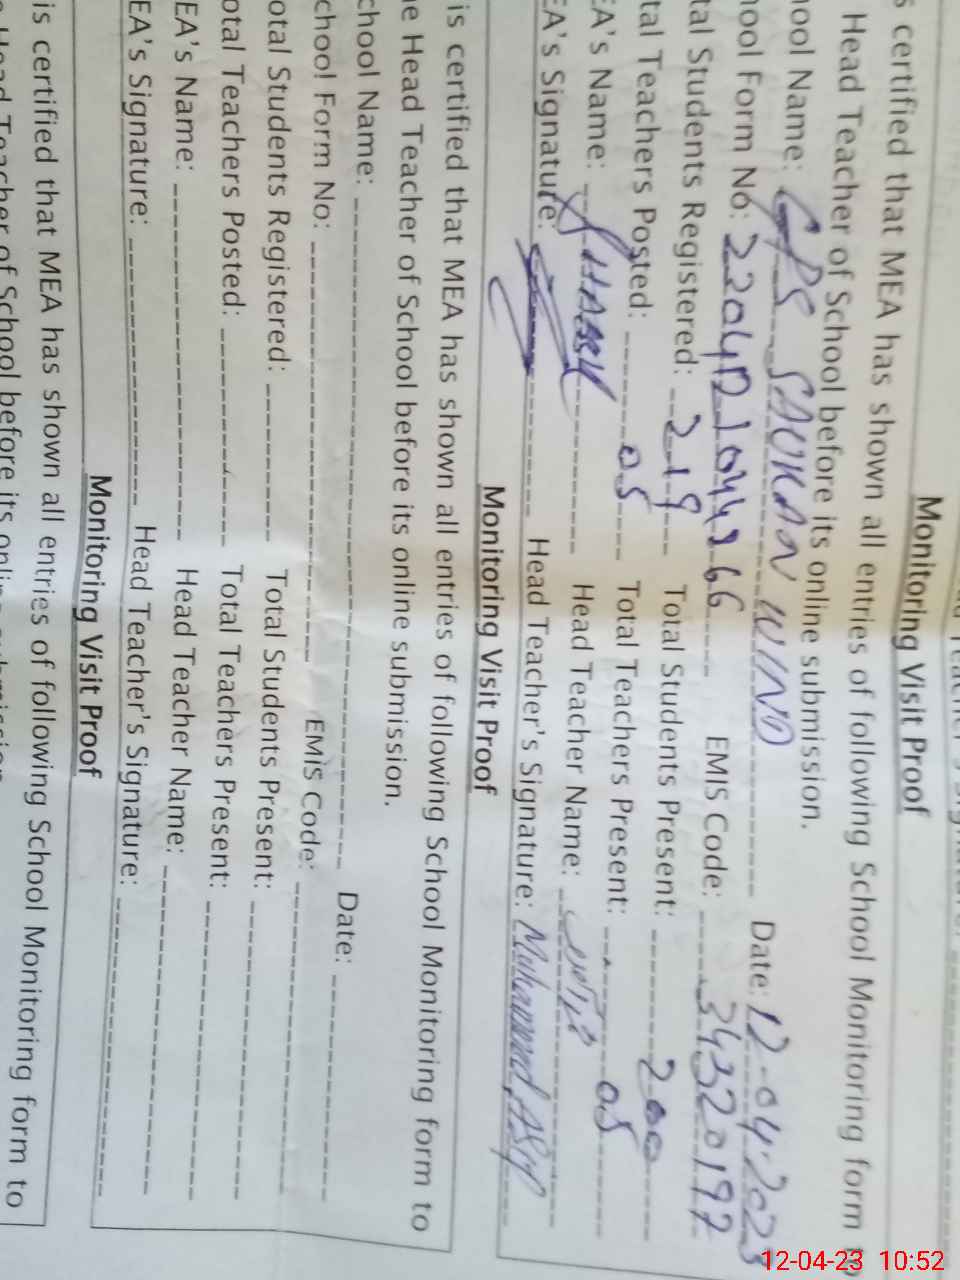 Monitoring Visit Proof
s certified that MEA has shown all entries of following School Monitoring form to
Head Teacher of School before its online submission.
hool Name: GPS Date: 12-04-2023
hool Form No: EMIS Code:
tal Students Registered: 219 Total Students Present: 200
tal Teachers Posted: 05 Total Teachers Present: 05
EA's Name: Head Teacher Name:
EA's Signature: Head Teacher's Signature: Muhammad
Monitoring Visit Proof
is certified that MEA has shown all entries of following School Monitoring form to
he Head Teacher of School before its online submission.
chool Name: Date:
chool Form No: EMIS Code:
otal Students Registered: Total Students Present:
otal Teachers Posted: Total Teachers Present:
EA's Name: Head Teacher Name:
EA's Signature: Head Teacher's Signature:
Monitoring Visit Proof
is certified that MEA has shown all entries of following School Monitoring form to
Head Teacher of School before its online submission.
12-04-23 10:52